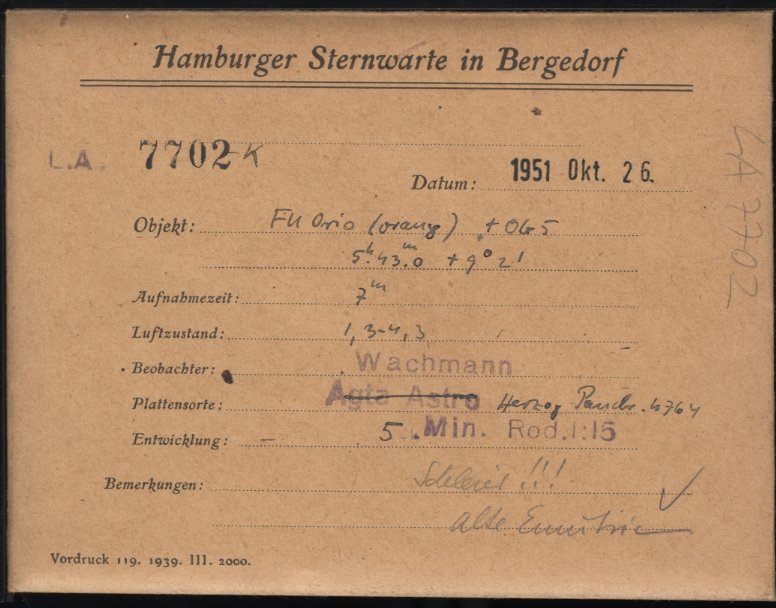 Hamburger Sternwarte in Bergedorf
L.A. 7702-K
Datum: 1951 Okt. 26.
Objekt: FU Orio (orang) + OG5
5ʰ.43ᵐ.0 + 9° 21'
Aufnahmezeit: 7ᵐ
Luftzustand: 1, 3-4, 3
Beobachter: Wachmann
Plattensorte: Agfa Astro Herzog Panchr. 4764
Entwicklung: – 5 Min. Rod. 1:15
Bemerkungen: Schleier!!! ✓
alte Emulsion
Vordruck 119. 1939. III. 2000.
LA 7702